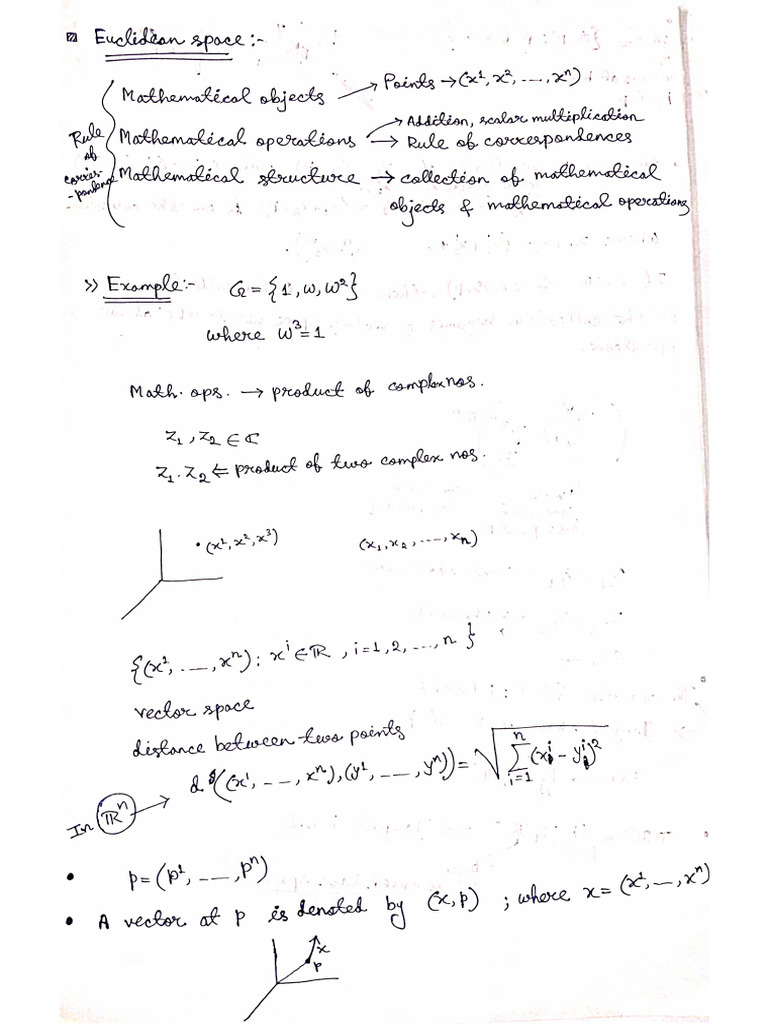 Euclidean space:-
Mathematical objects → Points → (x¹, x², ..., xⁿ)
→ Addition, scalar multiplication
Rule of corres-pondence
Mathematical operations → Rule of correspondences
Mathematical structure → collection of mathematical
objects & mathematical operations
>> Example:- G = {1, ω, ω²}
where ω³=1
Math. ops. → product of complex nos.
z₁, z₂ ∈ ℂ
z₁.z₂ ⇐ product of two complex nos.
• (x¹, x², x³) (x₁, x₂, ..., xₙ)
{(x¹, ..., xⁿ): xⁱ ∈ ℝ, i=1,2, ..., n}
vector space
distance between two points
d((x¹, ..., xⁿ), (y¹, ..., yⁿ)) = √(∑ᵢ₌₁ⁿ (xⁱ - yⁱ)²)
In ℝⁿ →
• p = (p¹, ..., pⁿ)
• A vector at p is denoted by (x, p) ; where x = (x¹, ..., xⁿ)
x
p